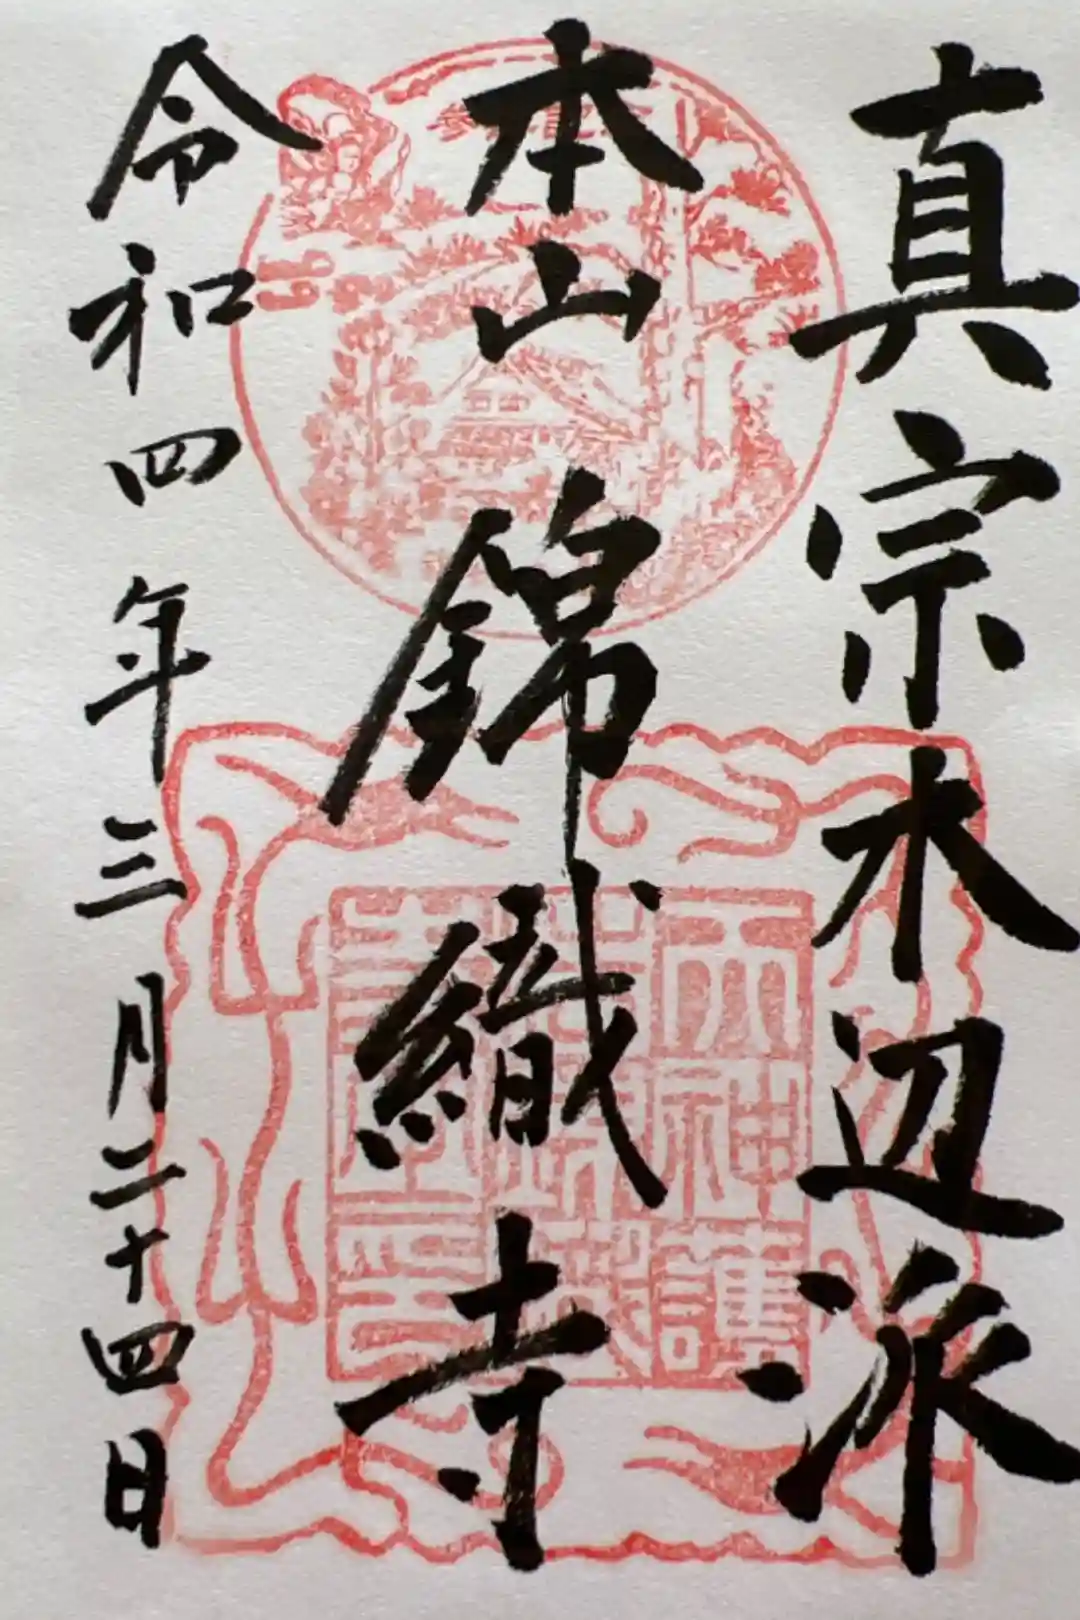 真宗木辺派
本山錦織寺
令和四年三月二十四日